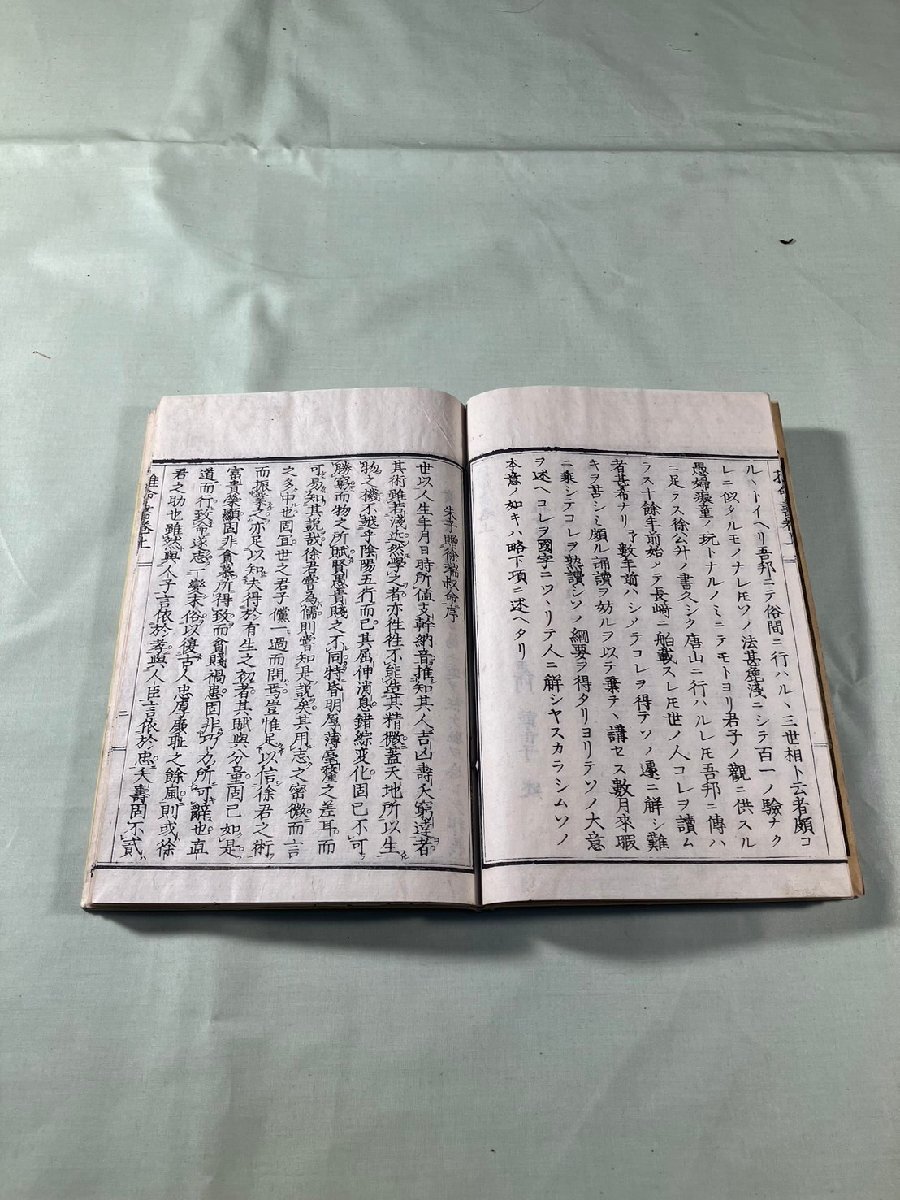 ルヽトイヘリ吾邦ニテ俗間ニ行ハル、三世相ト云者願コ
レニ似タルモノナレ𪜈ソノ法甚淺ニシテ百一ノ驗ナク
愚婦 童ノ玩トナルノミニテモトヨリ君子ノ觀ニ供スル
ニ足ラス徐公升ノ書久シク唐山ニ行ハルレ𪜈吾邦ニ傳ハ
ラス十餘年前始メテ長﨑ニ舶載スレ𪜈世ノ人コレヲ讀ム
者甚希ナリ 數年前ハシメテコレヲ得テソノ ニ解シ難
キヲ甚シミ願ル誦讀ヲ妨ルヲ以テ棄テヽ講セス數月來暇
ニ乘シテコレヲ熟讀シソノ綱要ヲ得タリヨリテソノ大意
ヲ述ヘコレヲ國字ニツヽリテ人ニ解シヤスカラシムソノ
本意ノ如キハ略下項ニ述ヘタリ
朱子贈徐端叔命序
世以人生年月日時所值支幹納音推知其人吉凶壽夭窮達者
其術雖若淺近然學之者亦徃徃不能造其精微蓋天地所以生
物之機不越乎陰陽五行而已其屈伸消息錯綜變化固已不可
勝窮而物之所賦賢愚貴賤之不同特昏明厚薄毫釐之差耳而
可易知其說哉徐君嘗為儒則嘗知是說矣其用志之密微而言
之多中也固宜世之君子儻一過而問焉豈惟足以信徐君之術
而振業之亦足以知夫得於有生之初者其賦與分量固已如是
富貴榮顯固非貪慕所得致而貧賤禍患固非巧力所可辭也直
道而行致命遂志一變末俗以復古人忠厚廉耻之餘風則或徐
君之助也雖然與人子言依於孝與人臣言依於忠夭壽固不貳
推命書卷上
二